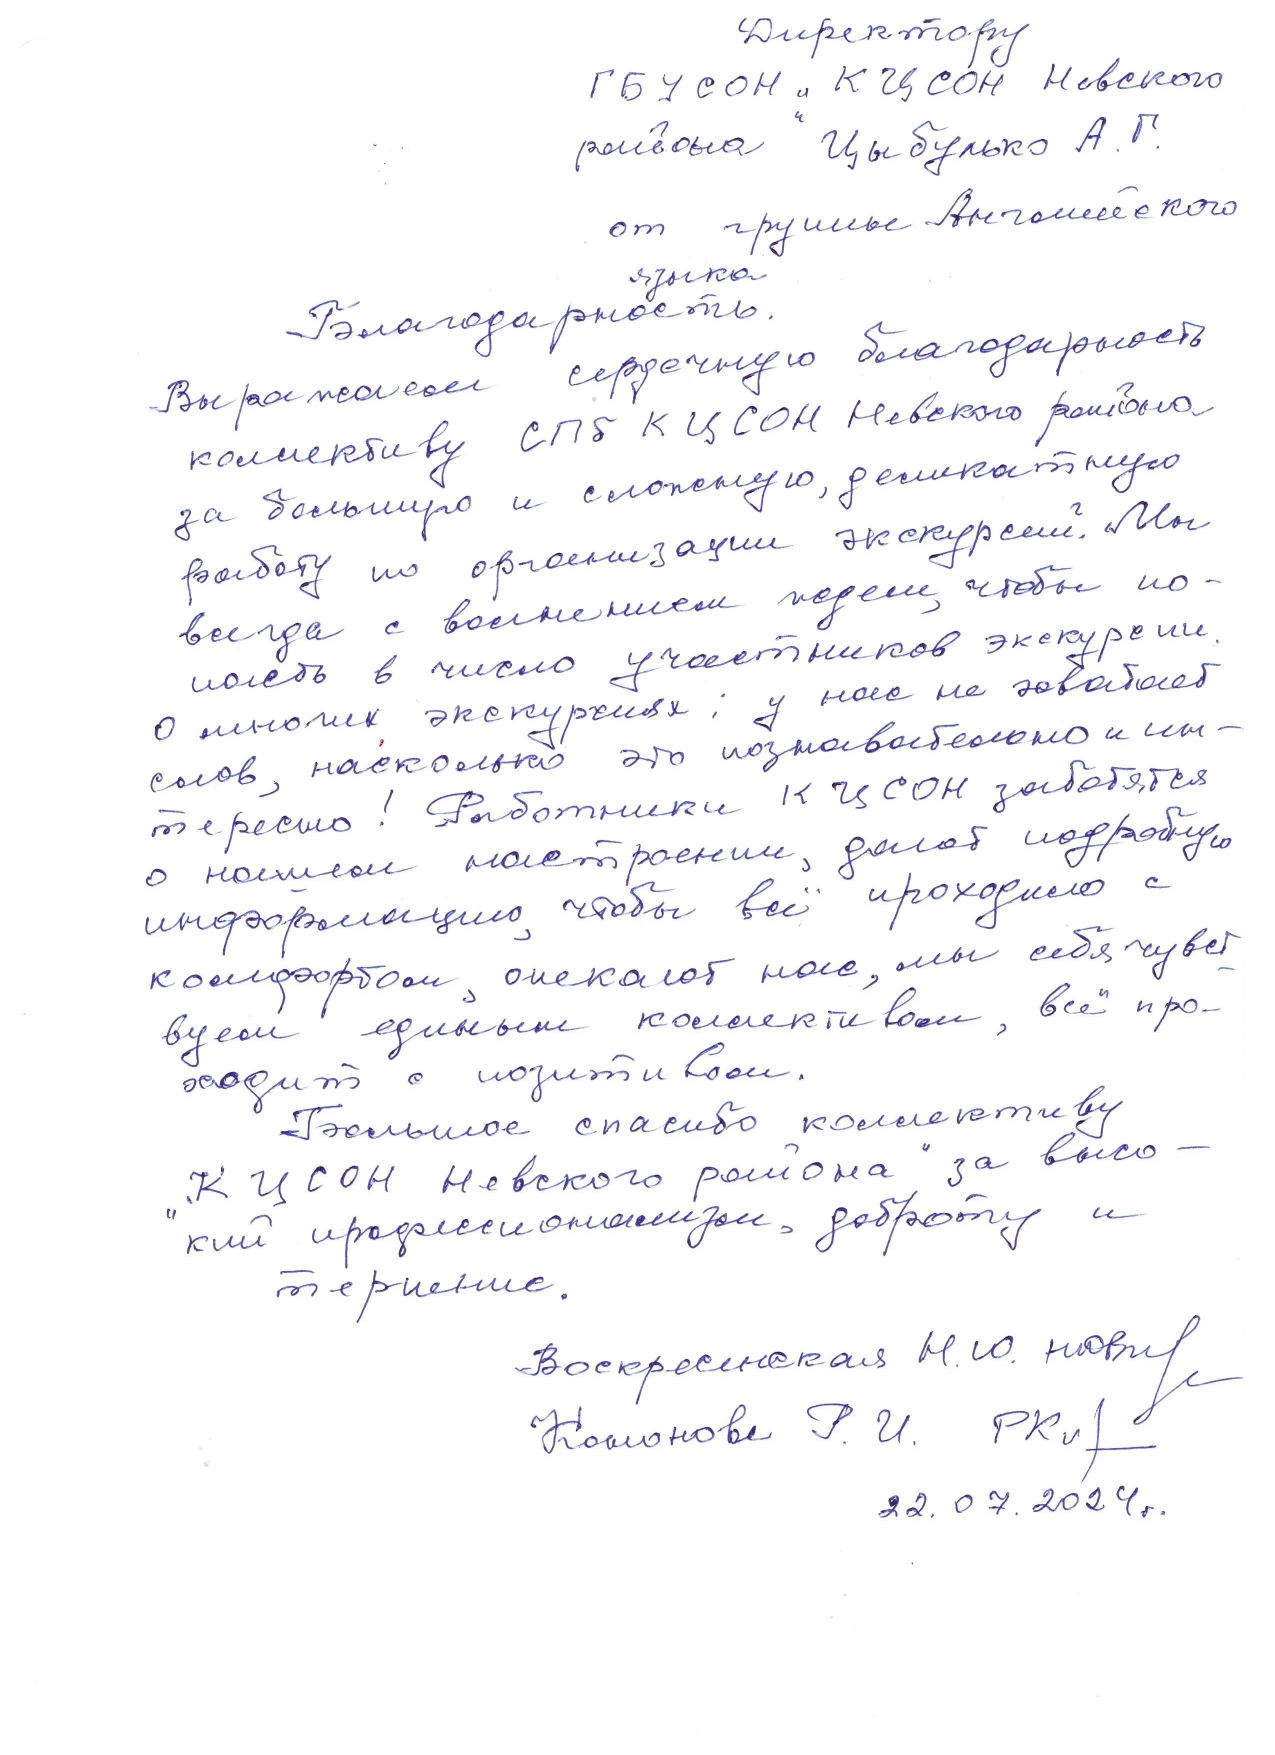 Директору
ГБУСОН „КЦСОН Невского
района" Цыбулько А.Г.
от группы Английского
языка
Благодарность.
Выражаем сердечную благодарность
коллективу СПб КЦСОН Невского района
за большую и сложную, деликатную
работу по организации экскурсий. Мы
всегда с волнением ждем, чтобы по-
пасть в число участников экскурсии.
О многих экскурсиях: у нас не хватает
слов, насколько это познавательно и ин-
тересно! Работники КЦСОН заботятся
о нашем настроении, дают подробную
информацию, чтобы всё проходило с
комфортом, опекают нас, мы себя чувст
вуем единым коллективом, всё про-
ходит с позитивом.
Большое спасибо коллективу
„КЦСОН Невского района" за высо-
кий профессионализм, доброту и
терпение.
Воскресенская Н.Ю.
Р.И.
22.07.2024г.